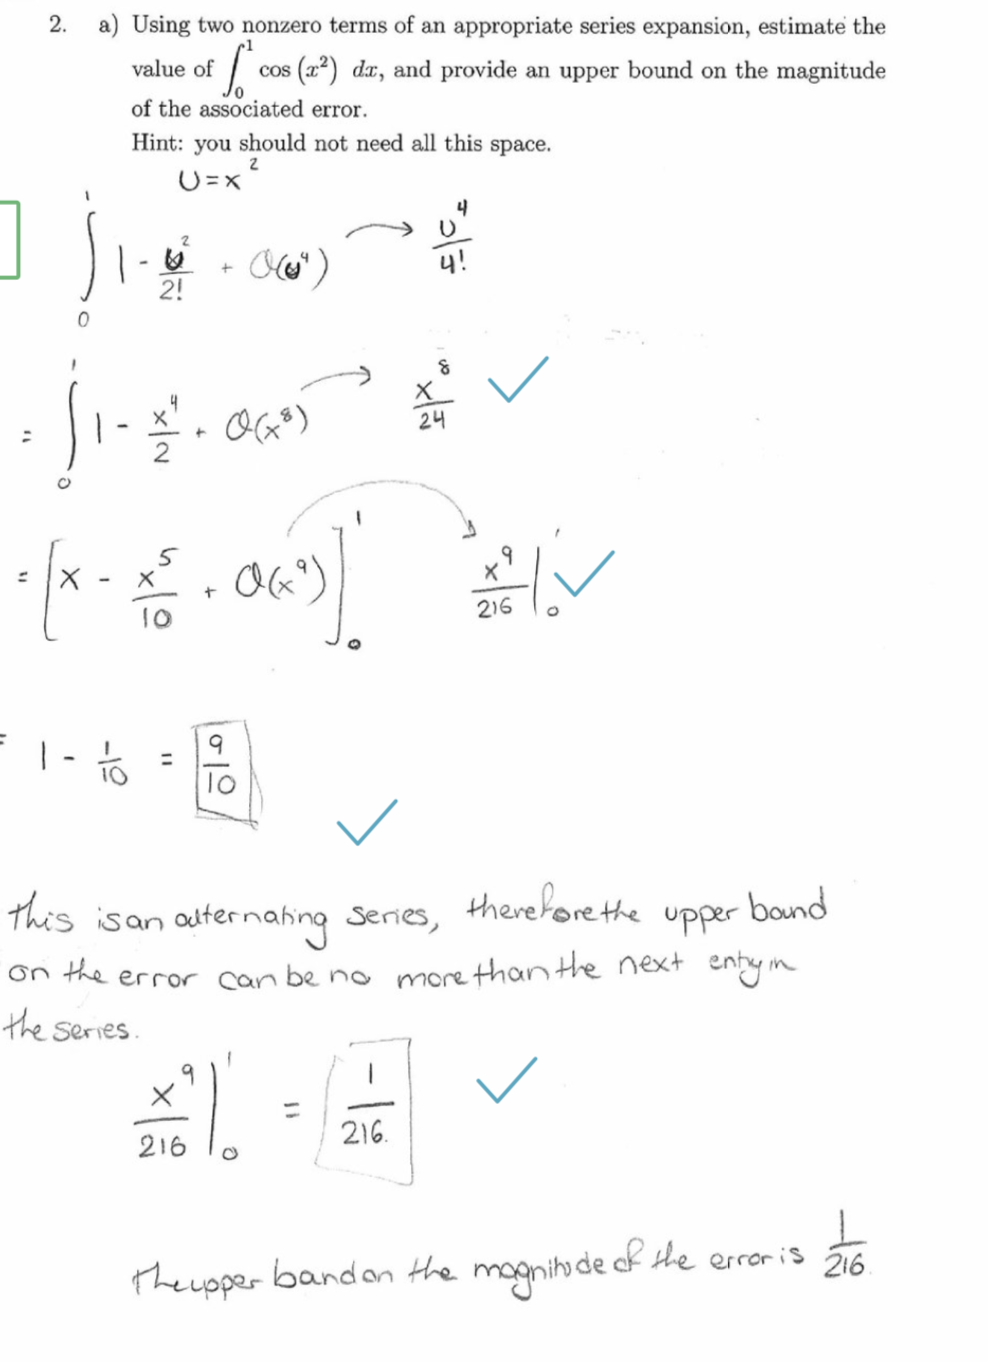 2. a) Using two nonzero terms of an appropriate series expansion, estimate the
value of ∫_0^1 cos (x²) dx, and provide an upper bound on the magnitude
of the associated error.
Hint: you should not need all this space.
U=x²
∫_0^1 1 - u²/2! + O(u⁴) → u⁴/4!
= ∫_0^1 1 - x⁴/2 + O(x⁸) → x⁸/24
= [x - x⁵/10 + O(x⁹)]_0^1 → x⁹/216 |_0^1
= 1 - 1/10 = 9/10
this is an alternating series, therefore the upper bound
on the error can be no more than the next entry in
the series.
x⁹/216 |_0^1 = 1/216.
The upper band on the magnitude of the error is 1/216.